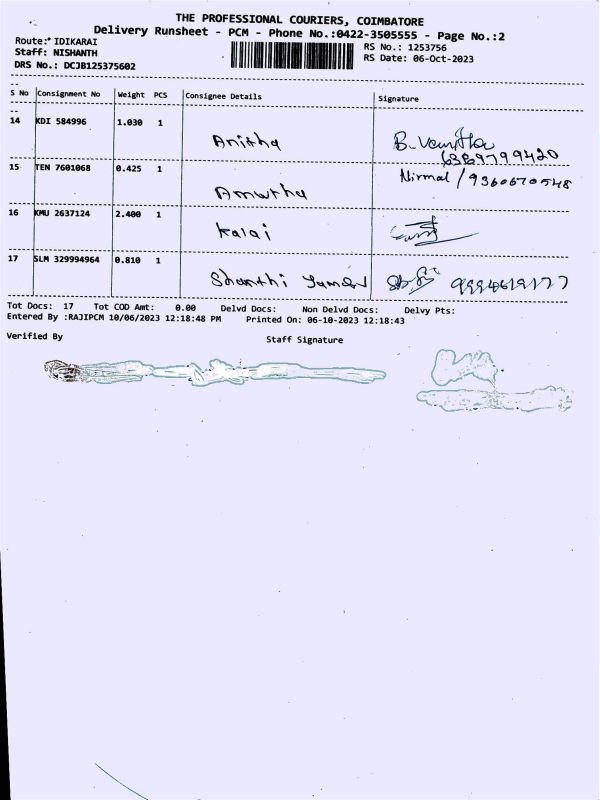 THE PROFESSIONAL COURIERS, COIMBATORE
Delivery Runsheet - PCM - Phone No.:0422-3505555 - Page No.:2
Route:* IDIKARAI
Staff: NISHANTH
DRS No.: DCJB125375602
RS No.: 1253756
RS Date: 06-Oct-2023
S No Consignment No Weight PCS Consignee Details Signature
14 KDI 584996 1.030 1 Anitha B. Vanitha
6369799420
15 TEN 7601068 0.425 1 Amutha Nirmal / 9360670548
16 KMU 2637124 2.400 1 Kalai
17 SLM 329994964 0.810 1 Shanthi 9994619177
Tot Docs: 17 Tot COD Amt: 0.00 Delvd Docs: Non Delvd Docs: Delvy Pts:
Entered By :RAJIPCM 10/06/2023 12:18:48 PM Printed On: 06-10-2023 12:18:43
Verified By Staff Signature